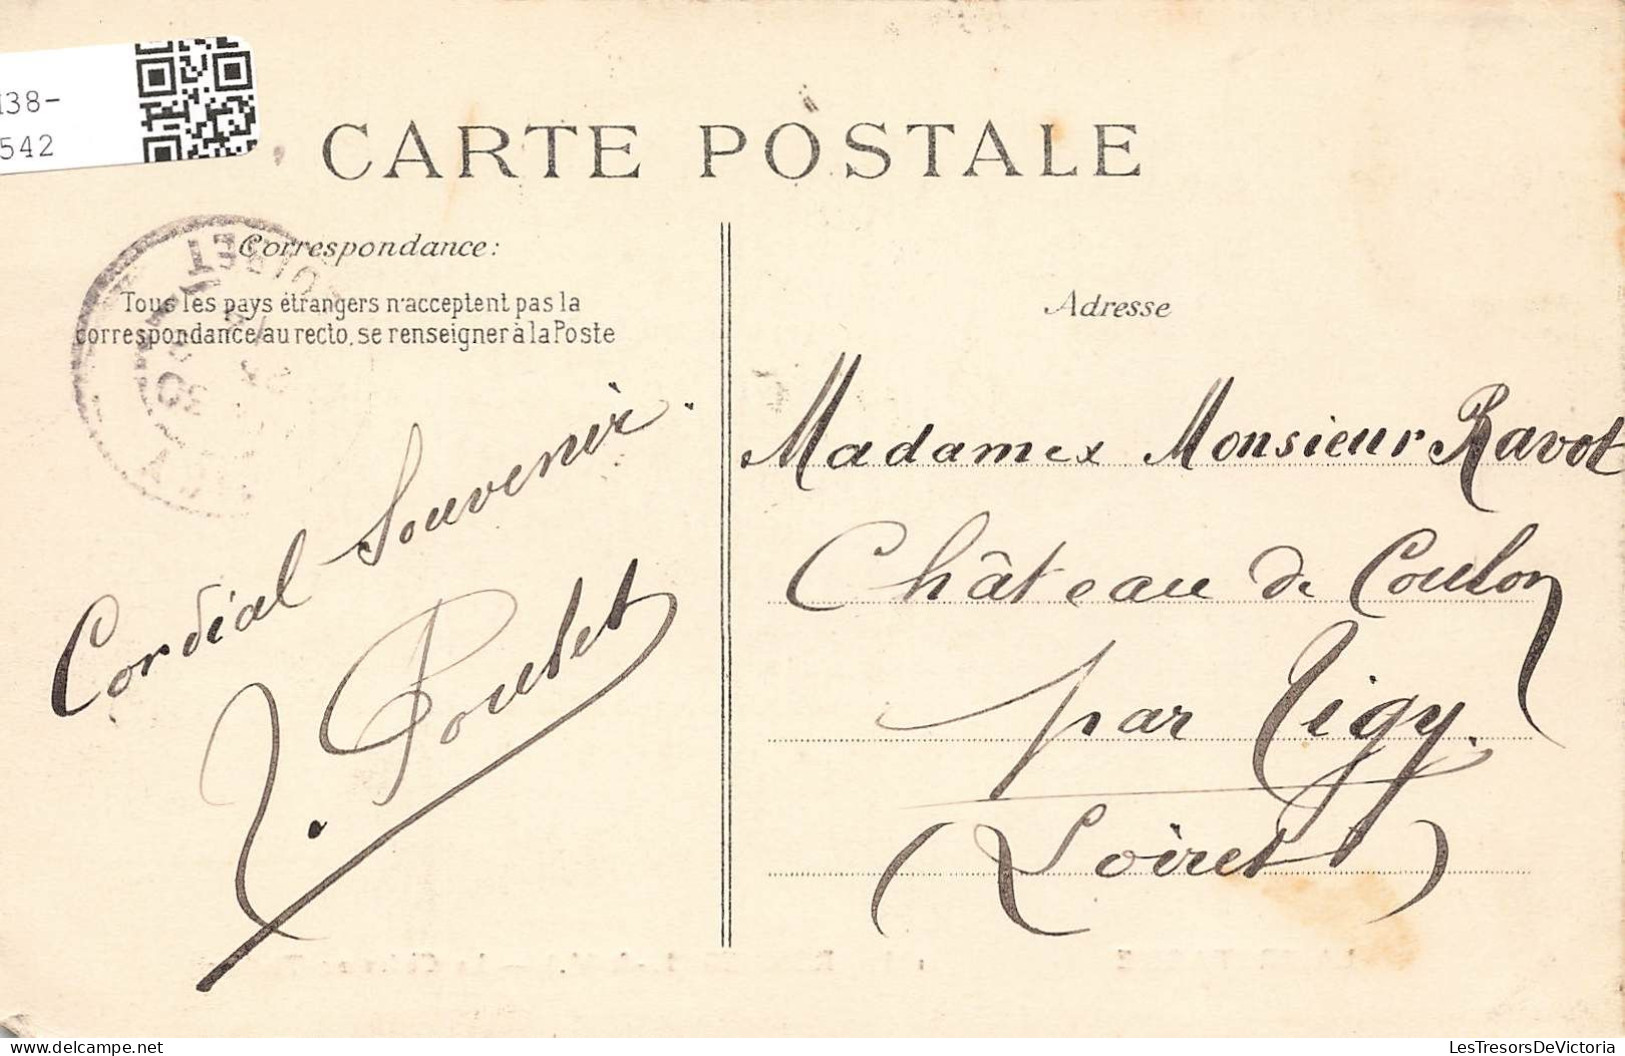 38-
542
CARTE POSTALE
Correspondance:
Tous les pays étrangers n'acceptent pas la
correspondance au recto, se renseigner à la Poste
Cordial Souvenir.
Poulet
Adresse
Madame & Monsieur Ravot
Château de Coulon
par Tigy.
(Loiret)
delcampe.net
LesTresorsDeVictoria